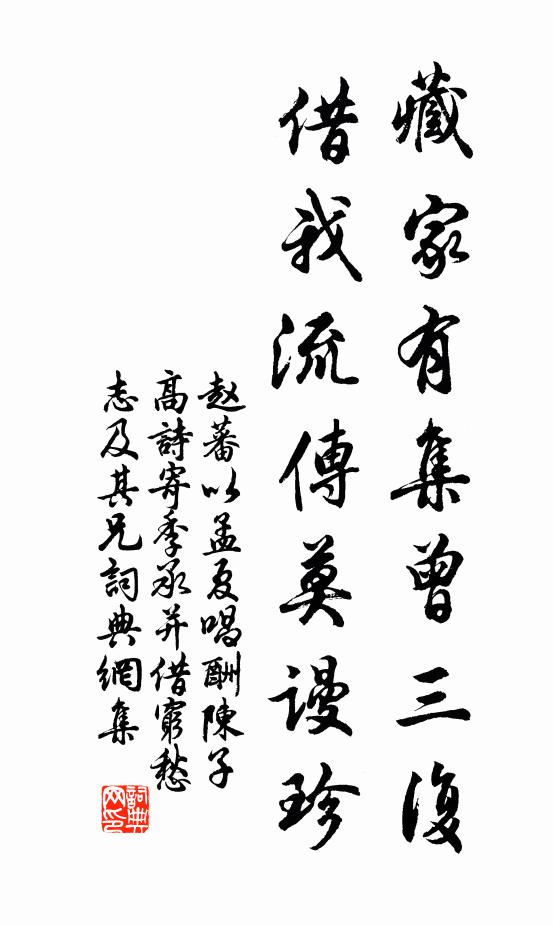 藏家有集曾三復
借我流傳莫謾珍
赵蕃以孟夏唱酬陳子
高詩寄季承并借窮愁
志及其兄詞典網集
詞典网印